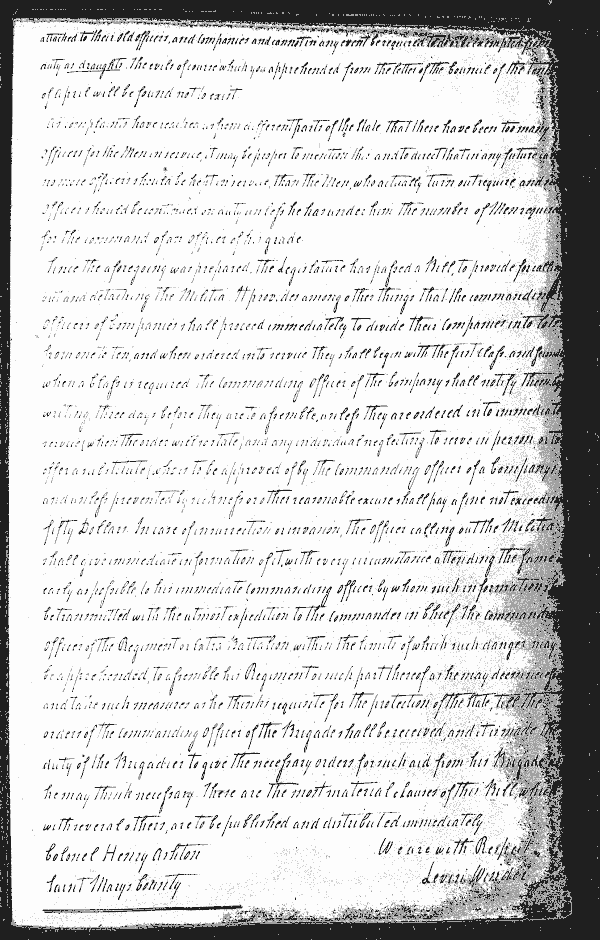 attached to their old officers, and Companies and cannot in any event be required to do or be exempted from
duty as draughts. The evils of course which you apprehended from the letter of the Council of the
of april will be found not to exist
As complaints have reached us from different parts of the State that there have been too many
officers for the Men in service, it may be proper to mention this and to direct that in any future
no more officers should be kept in service, than the Men, who actually turn out require, and no
Officer should be continued on duty unless he has under him the number of Men required
for the command of an officer of his grade
Since the aforegoing was prepared, the Legislature has passed a Bill, to provide for calling
out and detaching the Militia. It provides among other things that the commanding
Officers of Companies shall proceed immediately to divide their Companies into
from one to ten, and when ordered into service they shall begin with the first Class. and
when a Class is required the Commanding Officer of the Company shall notify them by
writing, three days before they are to assemble, unless they are ordered into immediate
service, (when the order will so state) and any individual neglecting to serve in person, or to
offer a substitute (who is to be approved of by the Commanding Officer of a Company)
and unless prevented by sickness or other reasonable excuse shall pay a fine not exceeding
fifty Dollars. In case of insurrection or invasion, the Officer calling out the Militia
shall give immediate information of it, with every circumstance attending the same as
early as possible, to his immediate Commanding Officer by whom such information
be transmitted with the utmost expedition to the Commander in Chief. the Commanding
Officer of the Regiment or Extra Battalion within the limits of which such danger may
be apprehended, to assemble his Regiment or such part thereof as he may deem
and take such measures as he thinks requisite for the protection of the State, till the
orders of the commanding Officer of the Brigade shall be received, and it is made the
duty of the Brigadier to give the necessary orders for such aid from his Brigade as
he may think necessary. These are the most material clauses of this Bill, which
with several others, are to be published and distributed immediately
We are with Respect
Colonel Henry Ashton
Levin Winder
Saint Marys County